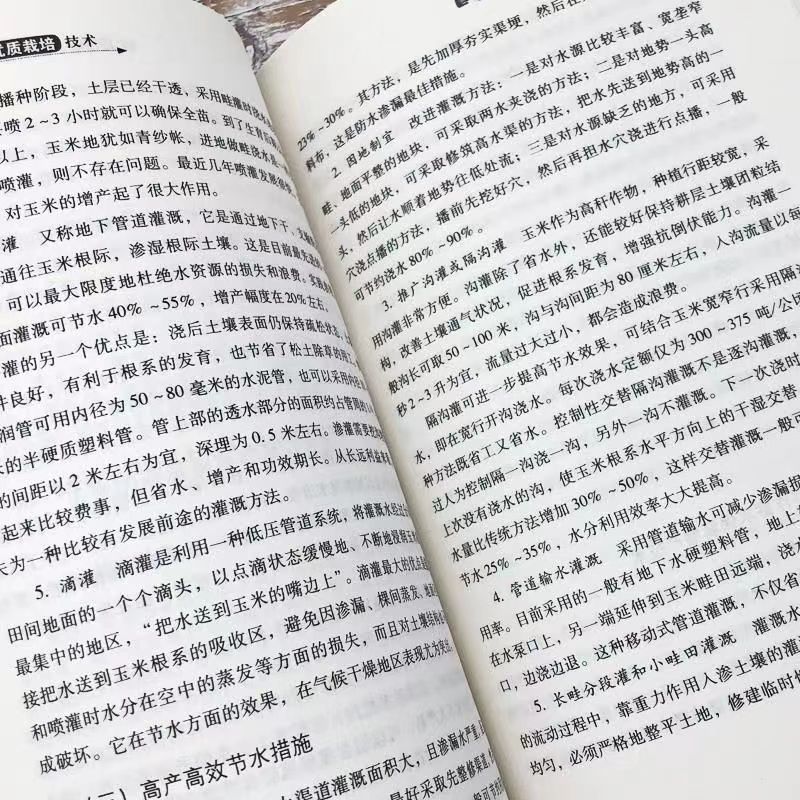 优质栽培 技术
播种阶段，土层已经干透，采用畦灌时浇水
喷2～3小时就可以确保全苗。到了生育
以上，玉米地犹如青纱帐，进地做畦浇水
喷灌，则不存在问题。最近几年喷灌发展很快
对玉米的增产起了很大作用。
灌 又称地下管道灌溉，它是通过地下干、支
通往玉米根际，渗湿根际土壤。这是目前最先进
可以最大限度地杜绝水资源的损失和浪费。实践
面灌溉可节水40%～55%，增产幅度在20%左右。
灌的另一个优点是：浇后土壤表面仍保持疏松状态
件良好，有利于根系的发育，也节省了松土除草的用工
润管可用内径为50～80毫米的水泥管，也可以采用
的半硬质塑料管。管上部的透水部分的面积约占管周的
的间距以2米左右为宜，深埋为0.5米左右。渗灌需要
起来比较费事，但省水、增产和功效期长。从长远利益
为一种比较有发展前途的灌溉方法。
5. 滴灌 滴灌是利用一种低压管道系统，将灌溉水
田间地面的一个个滴头，以点滴状态缓慢地、不断地
最集中的地区，“把水送到玉米的嘴边上”。滴灌最大的优点
接把水送到玉米根系的吸收区，避免因渗漏、棵间蒸发、地
和喷灌时水分在空中的蒸发等方面的损失，而且对土壤结构
成破坏。它在节水方面的效果，在气候干燥地区表现尤为突出
（二）高产高效节水措施
水渠道灌溉面积大，且渗漏水严重
是最好采取先整修渠道
23%～30%。其方法，是先加厚夯实渠埂，然后在
斜布，这是防水渗漏最佳措施。
2. 因地制宜 改进灌溉方法：一是对水源比较丰富、宽垄窄
畦、地面平整的地块，可采取两水夹浇的方法；二是对地势一头高
一头低的地块，可采取修筑高水渠的方法，把水先送到地势高的一
头，然后让水顺着地势往低处流；三是对水源缺乏的地方，可采用
穴浇点播的方法，播前先挖好穴，然后再担水穴浇进行点播，一般
可节约浇水80%～90%。
3. 推广沟灌或隔沟灌 玉米作为高秆作物，种植行距较宽，采
用沟灌非常方便。沟灌除了省水外，还能较好保持耕层土壤团粒结
构，改善土壤通气状况，促进根系发育，增强抗倒伏能力。沟灌一
般沟长可取50～100米，沟与沟间距为80厘米左右，入沟流量以每
秒2～3升为宜，流量过大过小，都会造成浪费。
隔沟灌可进一步提高节水效果，可结合玉米宽窄行采用隔
水，即在宽行开沟浇水。每次浇水定额仅为300～375吨/公
种方法既省工又省水。控制性交替隔沟灌溉不是逐沟灌溉，
过人为控制隔一沟浇一沟，另外一沟不灌溉。下一次浇时
上次没有浇水的沟，使玉米根系水平方向上的干湿交替
水量比传统方法增加30%～50%，这样交替灌溉一般可
节水25%～35%，水分利用效率大大提高。
4. 管道输水灌溉 采用管道输水可减少渗漏损
用率。目前采用的一般有地下水硬塑料管，地上
在水泵口上，另一端延伸到玉米畦田远端，浇水
口，边浇边退。这种移动式管道灌溉，不仅省
5. 长畦分段灌和小畦田灌溉 灌溉水
的流动过程中，靠重力作用入渗土壤的灌
均匀，必须严格地整平土地，修建临时